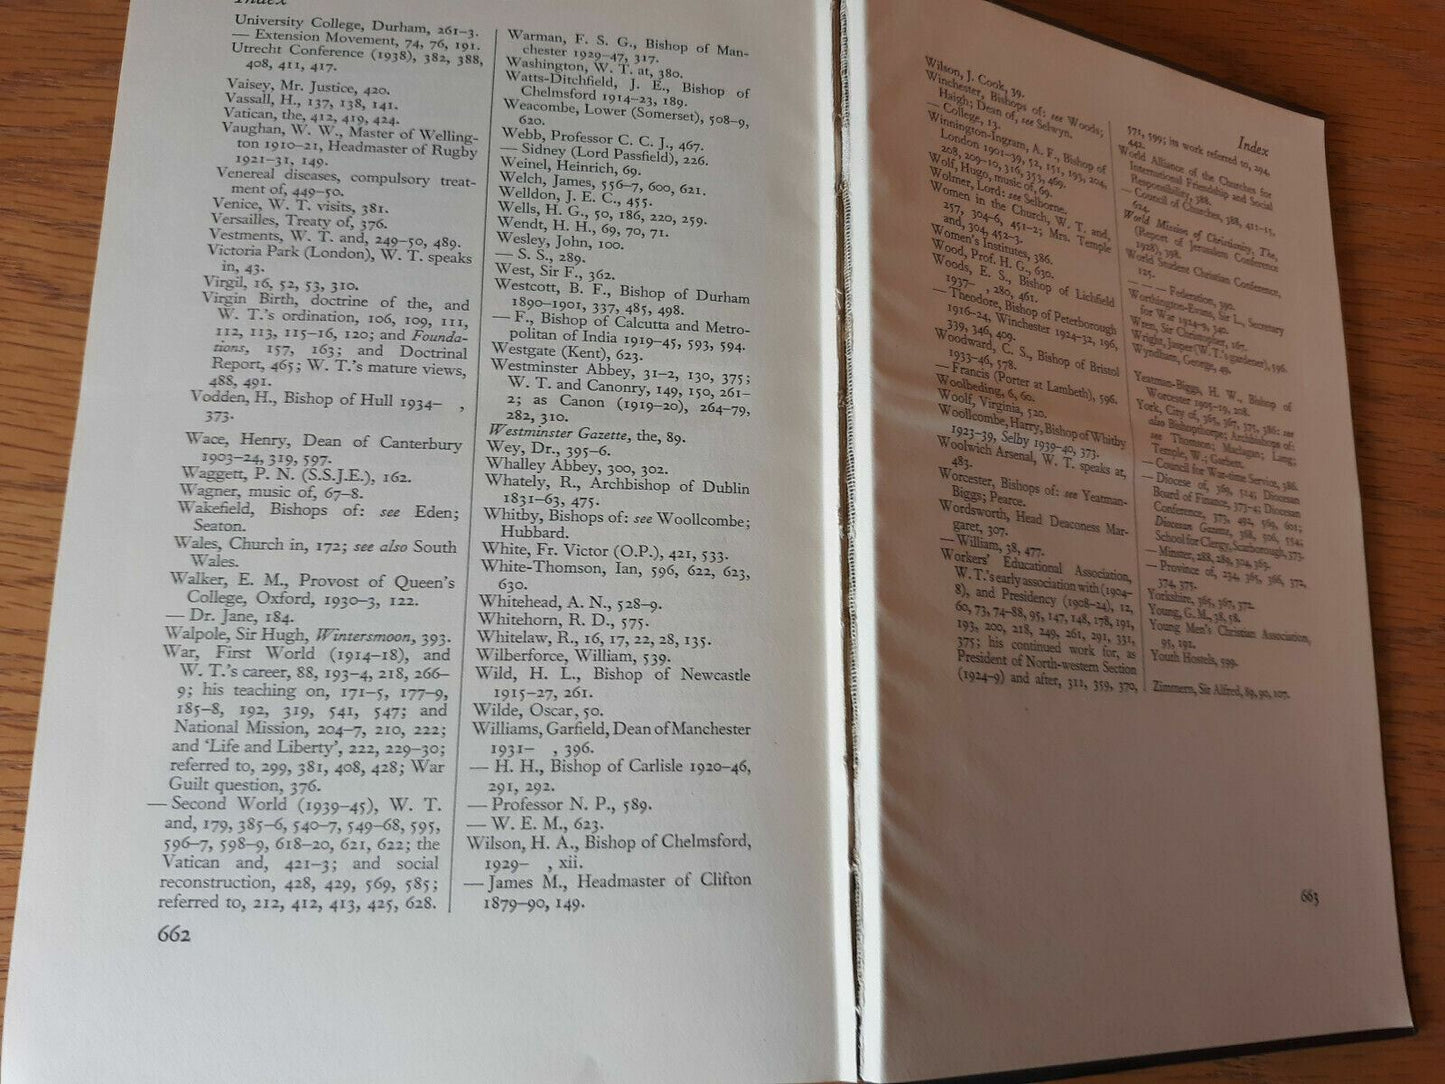 Index
University College, Durham, 261–3.
— Extension Movement, 74, 76, 191.
Utrecht Conference (1938), 382, 388,
408, 411, 417.
Vaisey, Mr. Justice, 420.
Vassall, H., 137, 138, 141.
Vatican, the, 412, 419, 424.
Vaughan, W. W., Master of Welling-
ton 1910–21, Headmaster of Rugby
1921–31, 149.
Venereal diseases, compulsory treat-
ment of, 449–50.
Venice, W. T. visits, 381.
Versailles, Treaty of, 376.
Vestments, W. T. and, 249–50, 489.
Victoria Park (London), W. T. speaks
in, 43.
Virgil, 16, 52, 53, 310.
Virgin Birth, doctrine of the, and
W. T.'s ordination, 106, 109, 111,
112, 113, 115–16, 120; and Founda-
tions, 157, 163; and Doctrinal
Report, 465; W. T.'s mature views,
488, 491.
Vodden, H., Bishop of Hull 1934– ,
373.
Wace, Henry, Dean of Canterbury
1903–24, 319, 597.
Waggett, P. N. (S.S.J.E.), 162.
Wagner, music of, 67–8.
Wakefield, Bishops of: see Eden;
Seaton.
Wales, Church in, 172; see also South
Wales.
Walker, E. M., Provost of Queen's
College, Oxford, 1930–3, 122.
— Dr. Jane, 184.
Walpole, Sir Hugh, Wintersmoon, 393.
War, First World (1914–18), and
W. T.'s career, 88, 193–4, 218, 266–
9; his teaching on, 171–5, 177–9,
185–8, 192, 319, 541, 547; and
National Mission, 204–7, 210, 222;
and 'Life and Liberty', 222, 229–30;
referred to, 299, 381, 408, 428; War
Guilt question, 376.
— Second World (1939–45), W. T.
and, 179, 385–6, 540–7, 549–68, 595,
596–7, 598–9, 618–20, 621, 622; the
Vatican and, 421–3; and social
reconstruction, 428, 429, 569, 585;
referred to, 212, 412, 413, 425, 628.
Warman, F. S. G., Bishop of Man-
chester 1929–47, 317.
Washington, W. T. at, 380.
Watts-Ditchfield, J. E., Bishop of
Chelmsford 1914–23, 189.
Weacombe, Lower (Somerset), 508–9,
620.
Webb, Professor C. C. J., 467.
— Sidney (Lord Passfield), 226.
Weinel, Heinrich, 69.
Welch, James, 556–7, 600, 621.
Welldon, J. E. C., 455.
Wells, H. G., 50, 186, 220, 259.
Wendt, H. H., 69, 70, 71.
Wesley, John, 100.
— S. S., 289.
West, Sir F., 362.
Westcott, B. F., Bishop of Durham
1890–1901, 337, 485, 498.
— F., Bishop of Calcutta and Metro-
politan of India 1919–45, 593, 594.
Westgate (Kent), 623.
Westminster Abbey, 31–2, 130, 375;
W. T. and Canonry, 149, 150, 261–
2; as Canon (1919–20), 264–79,
282, 310.
Westminster Gazette, the, 89.
Wey, Dr., 395–6.
Whalley Abbey, 300, 302.
Whately, R., Archbishop of Dublin
1831–63, 475.
Whitby, Bishops of: see Woollcombe;
Hubbard.
White, Fr. Victor (O.P.), 421, 533.
White-Thomson, Ian, 596, 622, 623,
630.
Whitehead, A. N., 528–9.
Whitehorn, R. D., 575.
Whitelaw, R., 16, 17, 22, 28, 135.
Wilberforce, William, 539.
Wild, H. L., Bishop of Newcastle
1915–27, 261.
Wilde, Oscar, 50.
Williams, Garfield, Dean of Manchester
1931– , 396.
— H. H., Bishop of Carlisle 1920–46,
291, 292.
— Professor N. P., 589.
— W. E. M., 623.
Wilson, H. A., Bishop of Chelmsford,
1929– , xii.
— James M., Headmaster of Clifton
1879–90, 149.
662
Index
Wilson, J. Cook, 39.
Winchester, Bishops of: see Woods;
Haigh; Dean of, see Selwyn.
— College, 13.
Winnington-Ingram, A. F., Bishop of
London 1901–39, 52, 151, 193, 204,
208, 209–10, 316, 353, 469.
Wolf, Hugo, music of, 69.
Wolmer, Lord: see Selborne.
Women in the Church, W. T. and,
257, 304–6, 451–2; Mrs. Temple
and, 304, 452–3.
Women's Institutes, 386.
Wood, Prof. H. G., 630.
Woods, E. S., Bishop of Lichfield
1937– , 280, 461.
— Theodore, Bishop of Peterborough
1916–24, Winchester 1924–32, 196,
339, 346, 409.
Woodward, C. S., Bishop of Bristol
1933–46, 578.
— Francis (Porter at Lambeth), 596.
Woolbeding, 6, 60.
Woolf, Virginia, 520.
Woollcombe, Harry, Bishop of Whitby
1923–39, Selby 1939–40, 373.
Woolwich Arsenal, W. T. speaks at,
483.
Worcester, Bishops of: see Yeatman-
Biggs; Pearce.
Wordsworth, Head Deaconess Mar-
garet, 307.
— William, 38, 477.
Workers' Educational Association,
W. T.'s early association with (1904–
8), and Presidency (1908–24), 12,
60, 73, 74–88, 95, 147, 148, 178, 191,
193, 200, 218, 249, 261, 291, 331,
375; his continued work for, as
President of North-western Section
(1924–9) and after, 311, 359, 370,
571, 599; its work referred to, 294,
442.
World Alliance of the Churches for
International Friendship and Social
Responsibility, 388.
— Council of Churches, 388, 411–15,
624.
World Mission of Christianity, The,
(Report of Jerusalem Conference
1928), 398.
World Student Christian Conference,
125.
— — — Federation, 390.
Worthington-Evans, Sir L., Secretary
for War 1924–9, 340.
Wren, Sir Christopher, 167.
Wright, Jasper (W. T.'s gardener), 596.
Wyndham, George, 49.
Yeatman-Biggs, H. W., Bishop of
Worcester 1905–19, 208.
York, City of, 365, 367, 375, 386: see
also Bishopthorpe; Archbishops of:
see Thomson; Maclagan; Lang;
Temple, W.; Garbett.
— Council for War-time Service, 386.
— Diocese of, 369, 514; Diocesan
Board of Finance, 373–4; Diocesan
Conference, 373, 492, 569, 601;
Diocesan Gazette, 368, 506, 554;
School for Clergy, Scarborough, 373.
— Minster, 288, 289, 304, 363.
— Province of, 234, 365, 366, 372,
374, 375.
Yorkshire, 365, 367, 372.
Young, G. M., 38, 58.
Young Men's Christian Association,
95, 192.
Youth Hostels, 599.
Zimmern, Sir Alfred, 89, 90, 107.
663